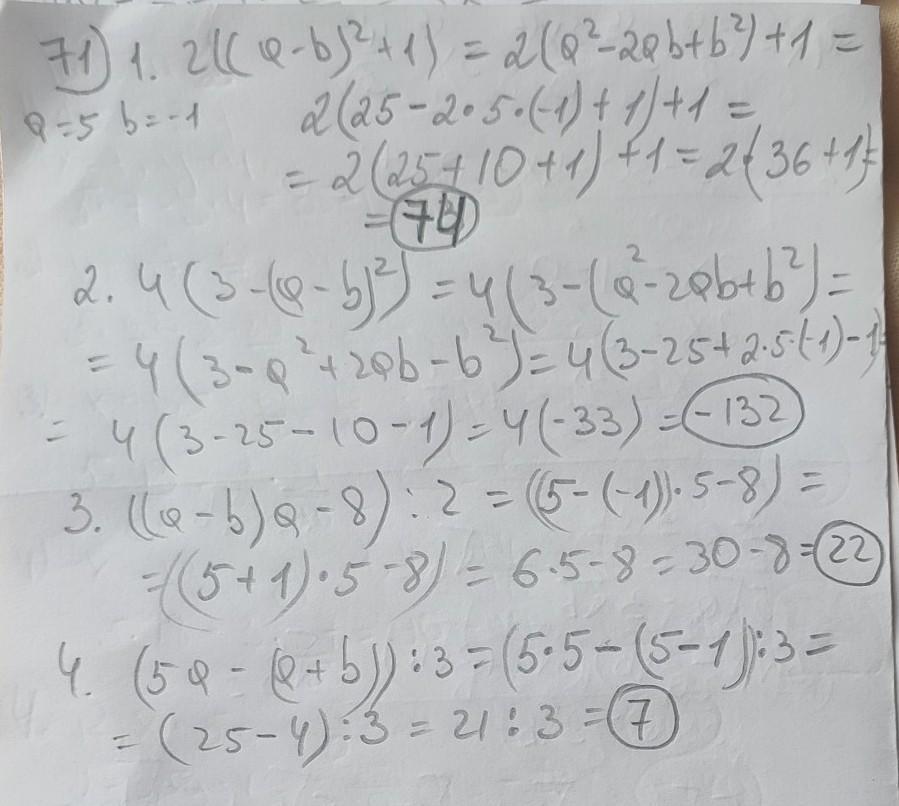 71) 1. 2((a-b)²+1) = 2(a²-2ab+b²)+1 =
a=5 b=-1 2(25-2·5·(-1)+1)+1 =
= 2(25+10+1)+1 = 2(36+1)=
= 74
2. 4(3-(a-b)²) = 4(3-(a²-2ab+b²) =
= 4(3-a²+2ab-b²) = 4(3-25+2·5·(-1)-1)=
= 4(3-25-10-1) = 4(-33) = -132
3. ((a-b)a-8):2 = ((5-(-1))·5-8) =
=((5+1)·5-8) = 6·5-8 = 30-8 = 22
4. (5a-(a+b)):3 = (5·5-(5-1)):3 =
= (25-4):3 = 21:3 = 7